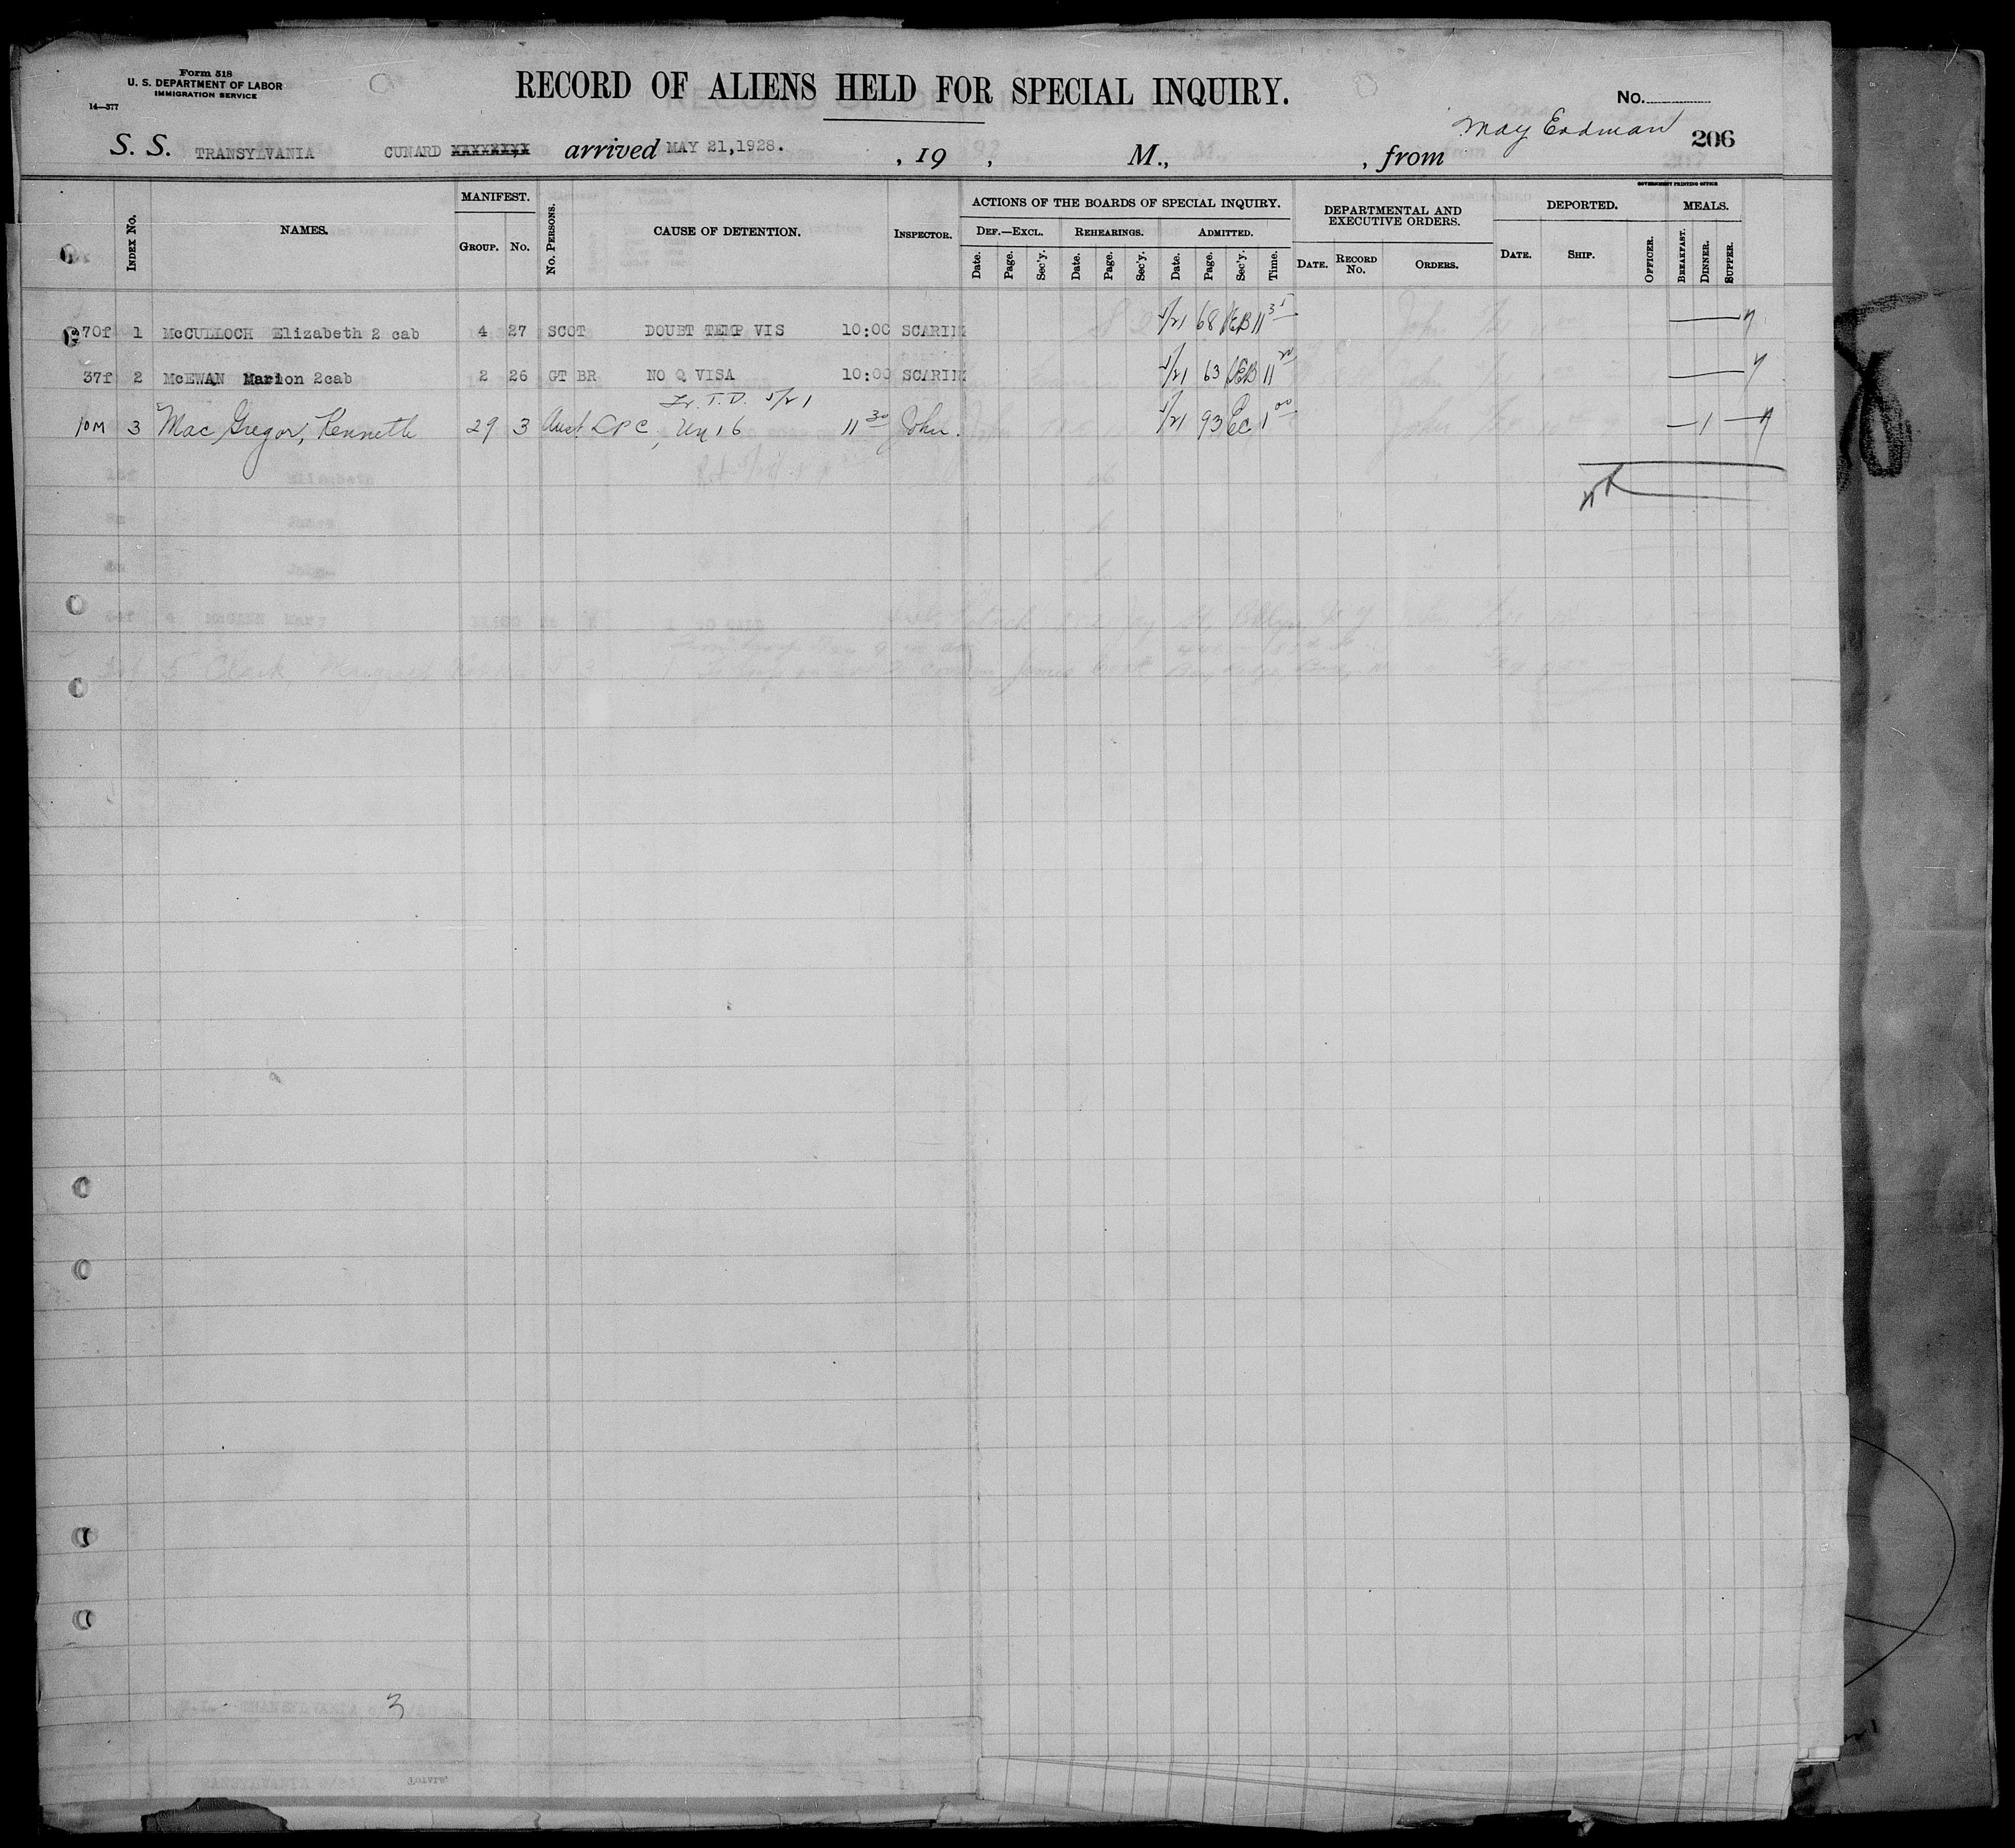 Form 518
U. S. DEPARTMENT OF LABOR
IMMIGRATION SERVICE
14—377
RECORD OF ALIENS HELD FOR SPECIAL INQUIRY.
No.
May Erdman 206
S. S. TRANSYLVANIA CUNARD arrived MAY 21,1928. , 19 , M., , from
GOVERNMENT PRINTING OFFICE
INDEX NO. NAMES. MANIFEST. GROUP. NO. NO. PERSONS. CAUSE OF DETENTION. INSPECTOR. ACTIONS OF THE BOARDS OF SPECIAL INQUIRY. DEPARTMENTAL AND EXECUTIVE ORDERS. DEPORTED. MEALS.
DEF.—EXCL. REHEARINGS. ADMITTED.
Date. Page. Sec'y. Date. Page. Sec'y. Date. Page. Sec'y. Time. DATE. RECORD NO. ORDERS. DATE. SHIP. OFFICER. BREAKFAST. DINNER. SUPPER.
70f 1 McCULLOCH Elizabeth 2 cab 4 27 SCOT DOUBT TEMP VIS 10:00 SCARIN 5/21 68 11 35
37f 2 McEWAN Marion 2cab 2 26 GT BR NO Q VISA 10:00 SCARIN 5/21 63 11 20
Fr. T.D. 5/21
10M 3 Mac Gregor, Kenneth 29 3 Aust LPC, Un 16 11 30 John. 5/21 93 EC 1 00 1
3